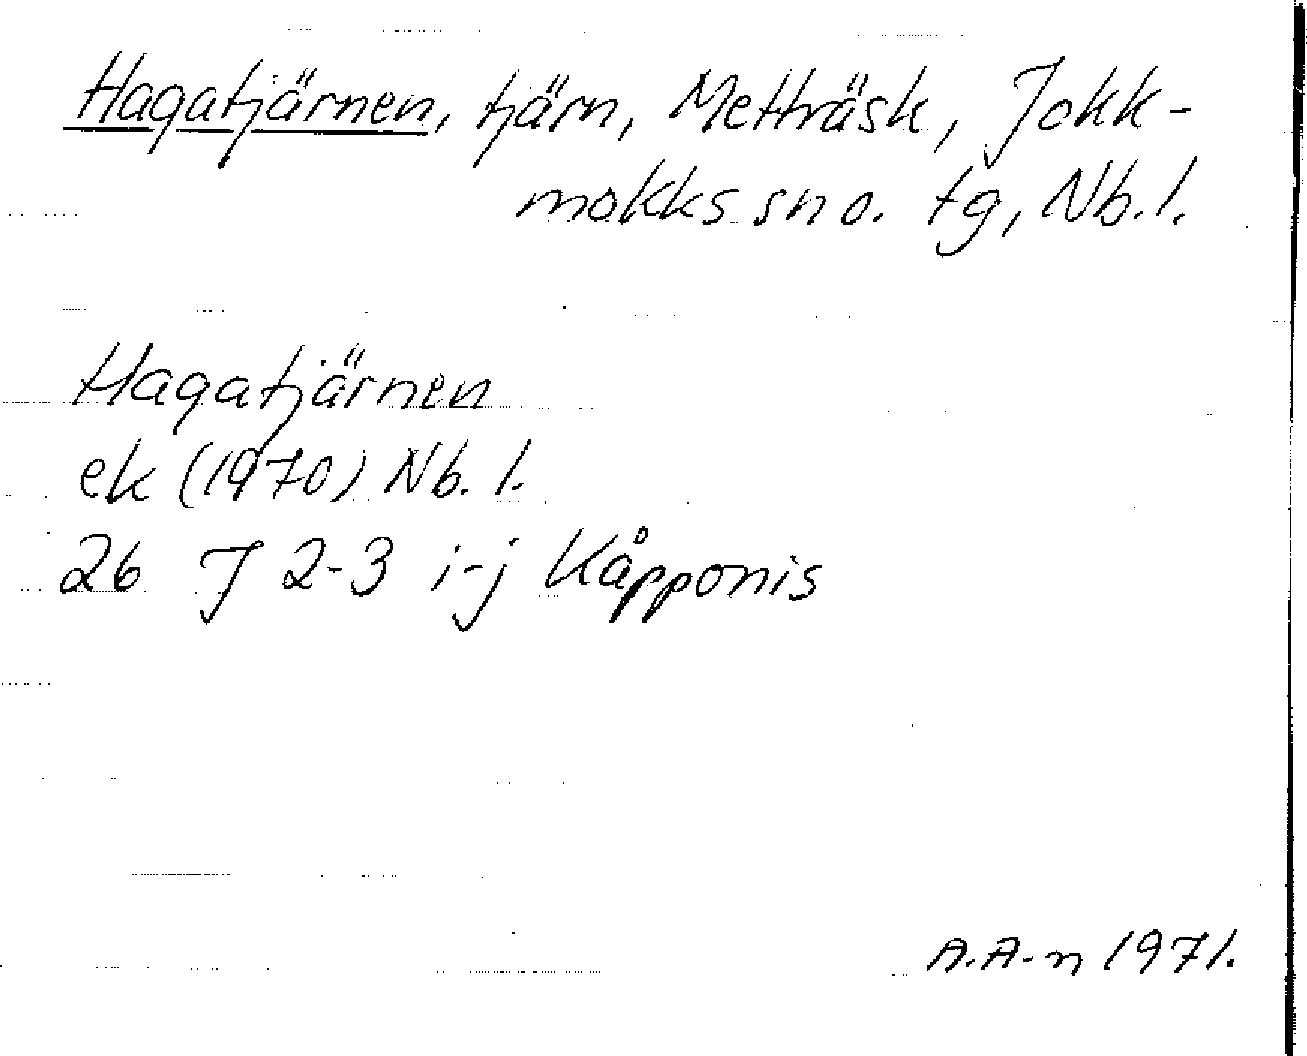 Hagatjärnen, tjärn, Metträsk, Jokk-
mokks sn o. tg, Nb. l.
Hagatjärnen
ek (1970) Nb. l.
26 J 2-3 i-j Kåpponis
A.A-n 1971.